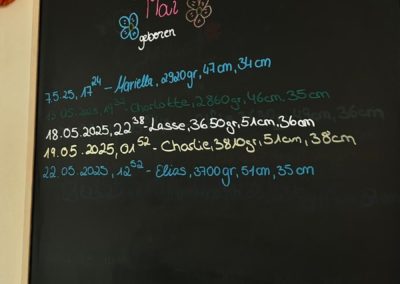 Mai
geboren
7.5.25, 17²⁴ - Mariella, 2920gr, 47cm, 34cm
13.05.2025, 19 - Charlotte, 2860gr, 46cm, 35cm
18.05.2025, 22³⁸ - Lasse, 3650gr, 51cm, 36cm
19.05.2025, 01⁵² - Charlie, 3810gr, 51cm, 38cm
22.05.2025, 12⁵² - Elias, 3700gr, 51cm, 35cm